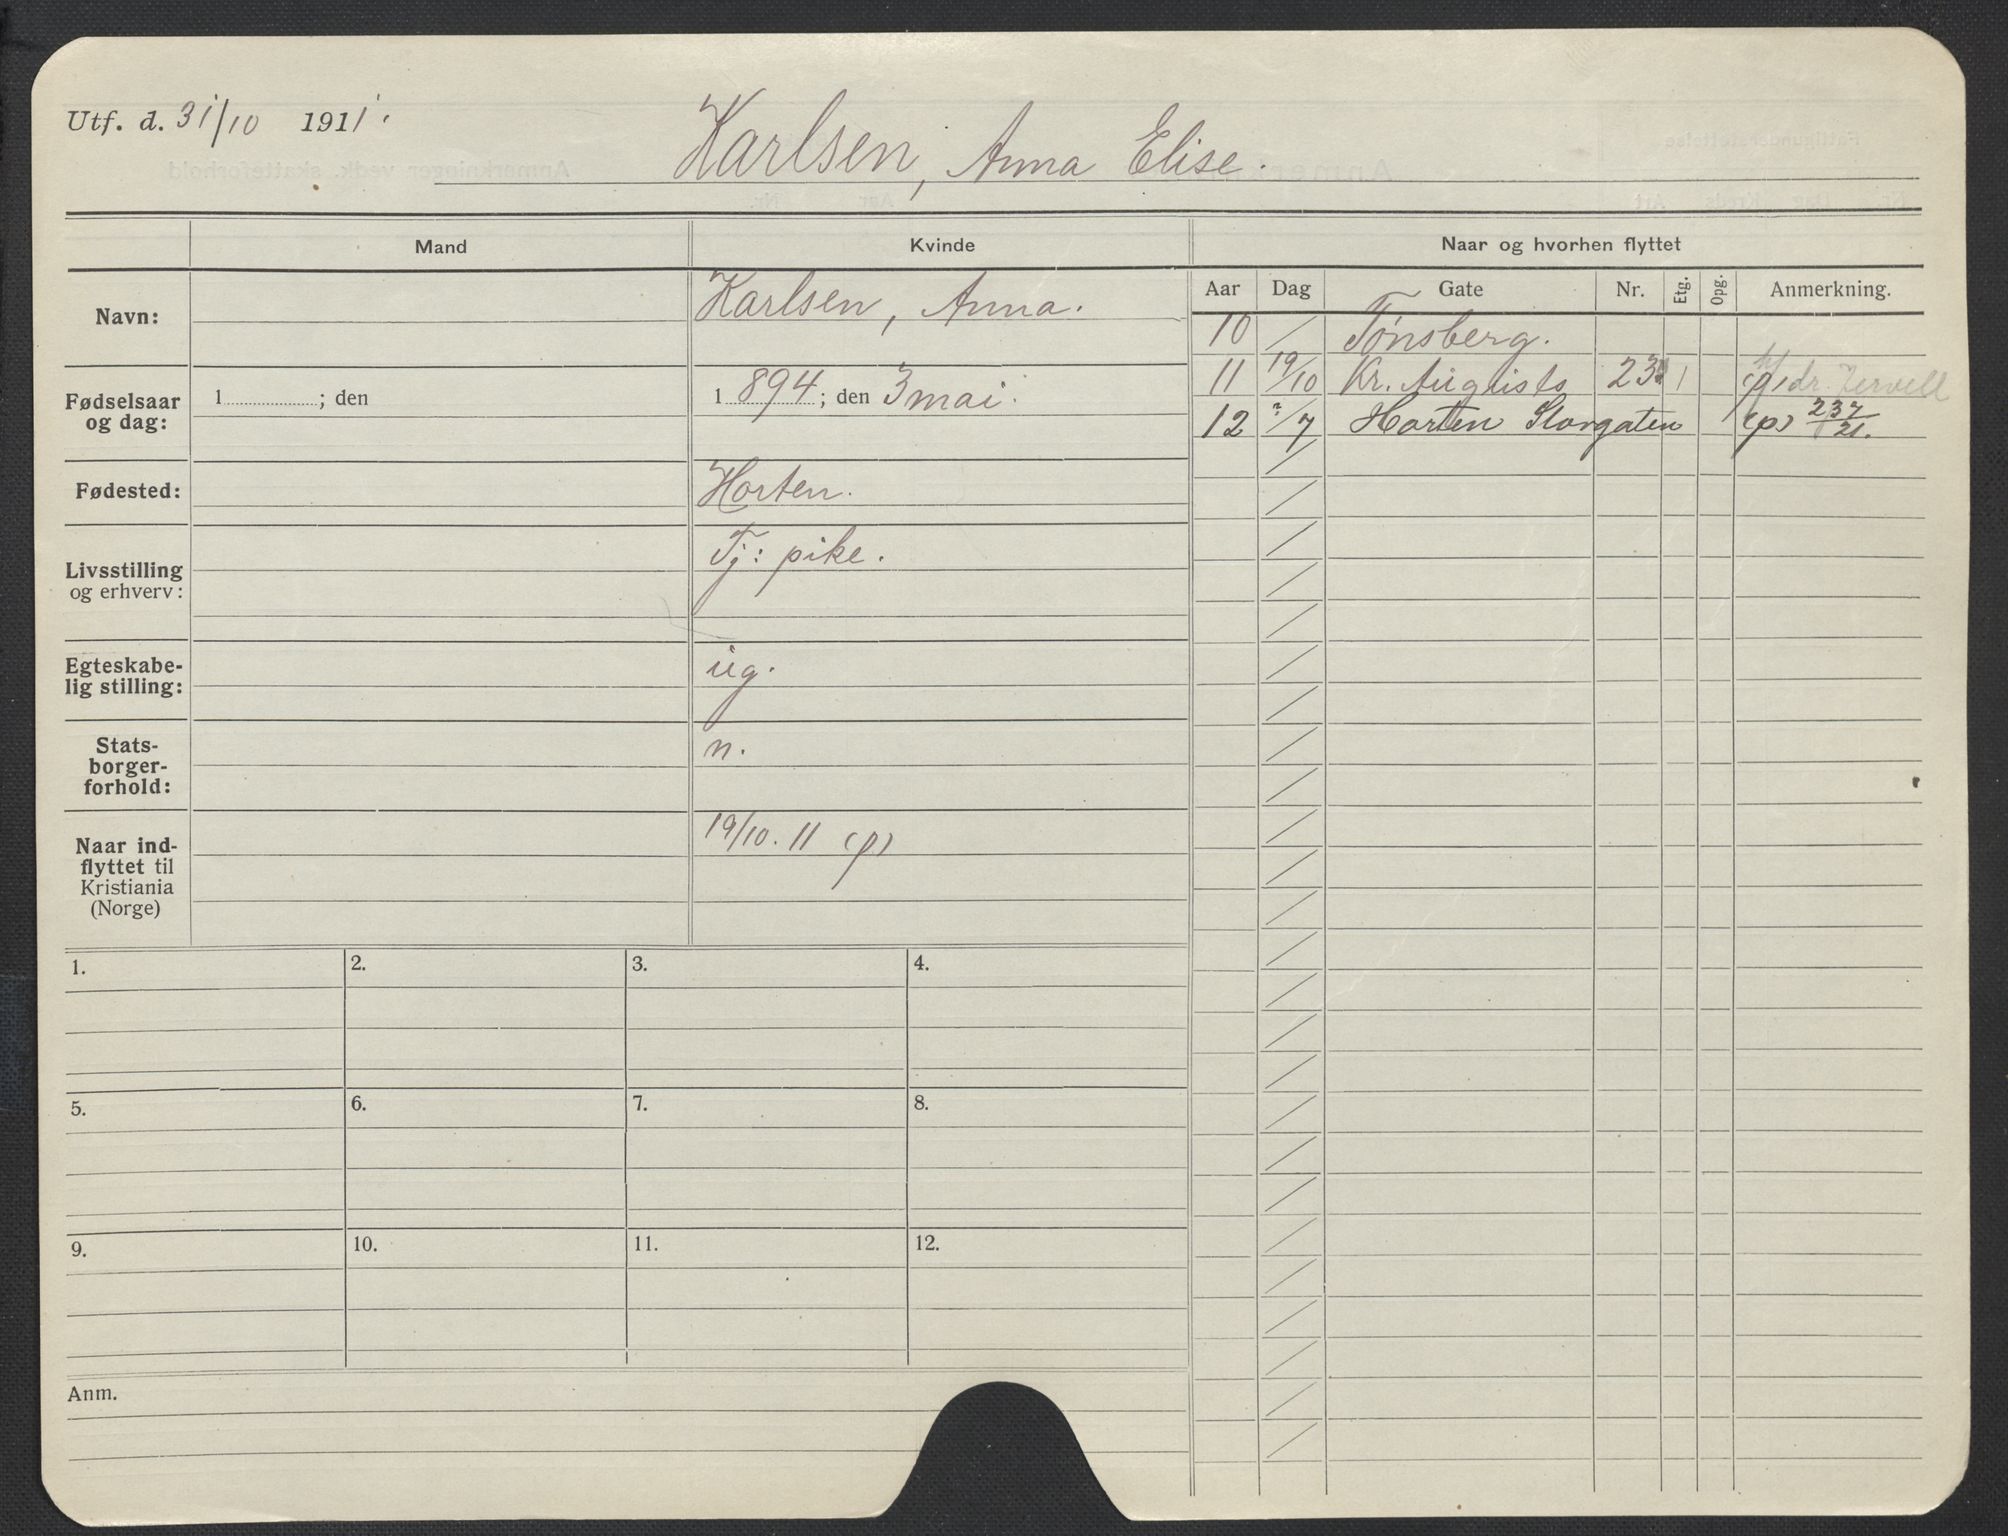 Utf. d. 31/10 1911.
Karlsen, Anna Elise.
Mand
Kvinde
Naar og hvorhen flyttet
Navn:
Karlsen, Anna.
Aar Dag Gate Nr. Etg. Opg. Anmerkning.
10 / Tønsberg.
11 19/10 Kr. Augusts 23 1 (p) dr.
12 /7 Horten Storgaten (p) 237/21.
Fødselsaar
og dag:
1 ; den
1 894 ; den 3 mai.
Fødested:
Horten.
Livsstilling
og erhverv:
Tj: pike.
Egteskabe-
lig stilling:
ug.
Stats-
borger-
forhold:
n.
Naar ind-
flyttet til
Kristiania
(Norge)
19/10. 11 (p)
1. 2. 3. 4.
5. 6. 7. 8.
9. 10. 11. 12.
Anm.